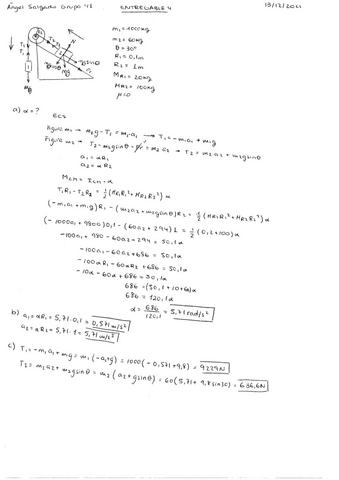 Ángel Salgado Grupo 41 ENTREGABLE 4 13/12/2021
m₁=1000kg
m₂=60kg
θ=30°
R₁=0,1m
R₂=1m
MR₁=20kg
MR₂=100kg
μ=0
a) α=?
Figura m₁ → m₁g-T₁=m₁·a₁ → T₁=-m₁a₁+m₁g
Figura m₂ → T₂-m₂gsinθ = m₂a₂ → T₂=m₂a₂+m₂gsinθ
a₁=αR₁
a₂=αR₂
Mcm=Icm·α
T₁R₁-T₂R₂=½(MR₁R₁²+MR₂R₂²)α
(-m₁a₁+m₁g)R₁-(m₂a₂+m₂gsinθ)R₂=½(MR₁R₁²+MR₂R₂²)α
(-1000a₁+9800)0,1-(60a₂+294)1=½(0,2+100)α
-100a₁+980-60a₂-294=50,1α
-100a₁-60a₂+686=50,1α
-100αR₁-60αR₂+686=50,1α
-10α-60α+686=50,1α
686=(50,1+10+60)α
686=120,1α
α=686/120,1=5,71rad/s²
b) a₁=αR₁=5,71·0,1=0,571m/s²
a₂=αR₂=5,71·1=5,71m/s²
c) T₁=-m₁a₁+m₁g=m₁(-a₁+g)=1000(-0,571+9,8)=9229N
T₂=m₂a₂+m₂gsinθ=m₂(a₂+gsinθ)=60(5,71+9,8sin30)=636,6N